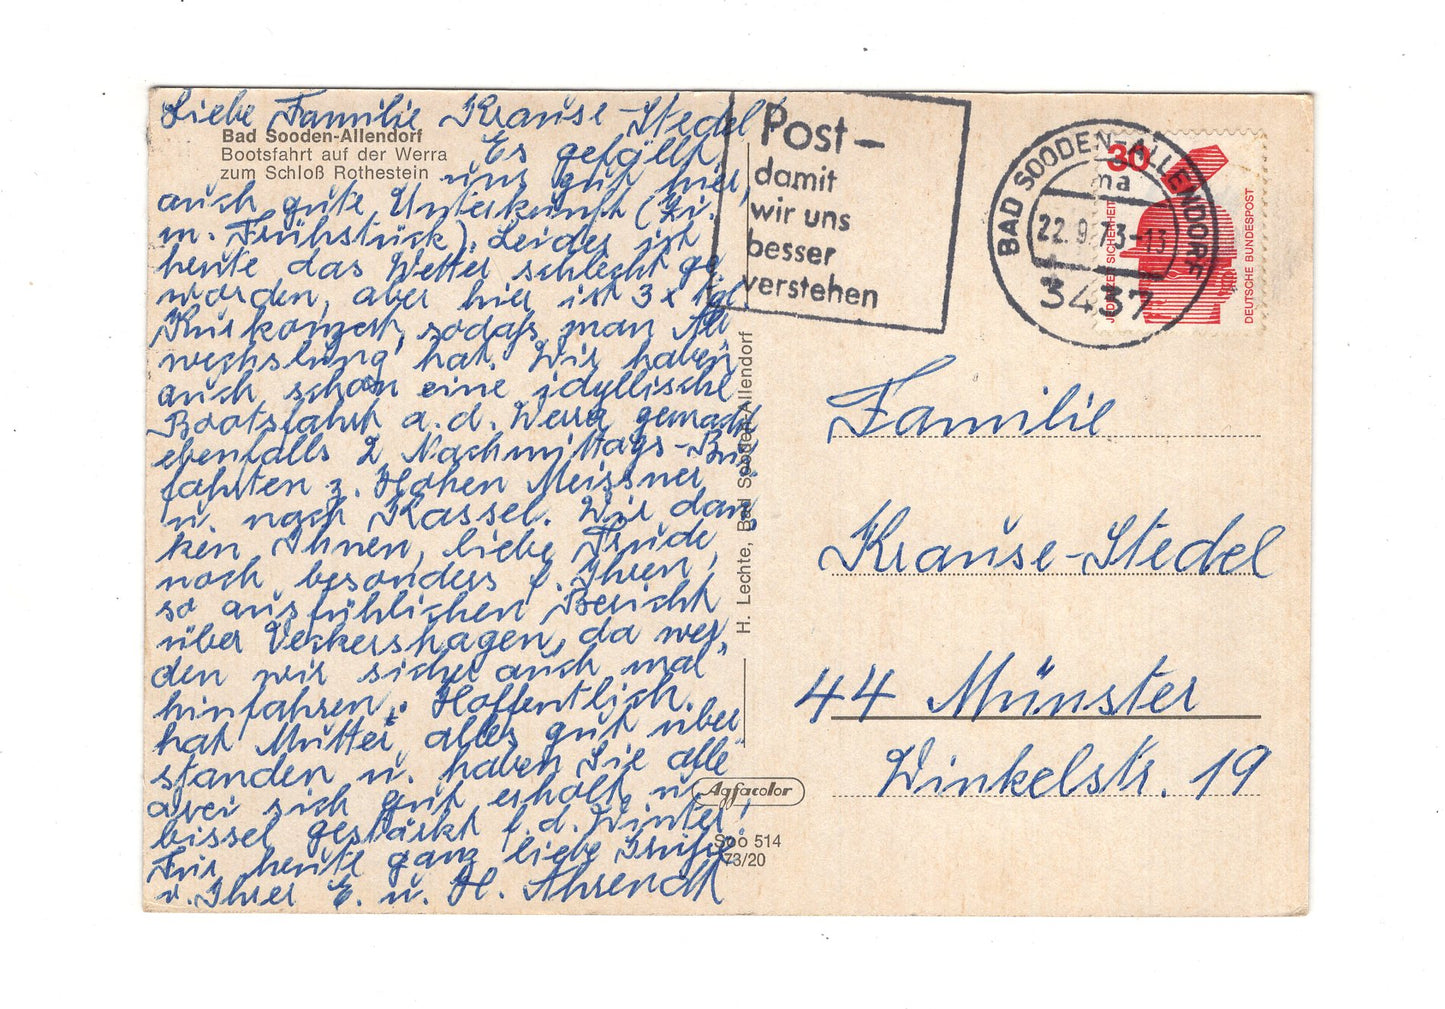 Liebe Familie Krause-Stedel
Bad Sooden-Allendorf
Bootsfahrt auf der Werra
zum Schloß Rothestein
Es gefällt
uns gut hier,
auch gute Unterkunft (Zi.
m. Frühstück). Leider ist
heute das Wetter schlecht ge
worden, aber hier ist 3 x tgl.
Kurkonzert, sodaß man Ab
wechslung hat. Wir haben
auch schon eine idyllische
Bootsfahrt a. d. Werra gemacht
ebenfalls 2 Nachmittags-Bus
fahrten z. Hohen Meissner
u. nach Kassel. Wir dan
ken Ihnen, liebe Trude,
noch besonders f. Ihren,
so ausführlichen Bericht
über Veckershagen, da wer
den wir sicher auch mal
hinfahren. Hoffentlich
hat Mutter alles gut über
standen u. haben Sie alle
drei sich gut erholt u.
bissel gestärkt f. d. Winter!
Für heute ganz liebe Grüße
v. Ihrer E. u. H. Ahrendt
H. Lechte, Bad Sooden-Allendorf
Agfacolor
Soo 514
73/20
Post –
damit
wir uns
besser
verstehen
BAD SOODEN-ALLENDORF
ma
22.9.73-13
3437
30
JEDERZEIT SICHERHEIT
DEUTSCHE BUNDESPOST
Familie
Krause-Stedel
44 Münster
Winkelstr. 19